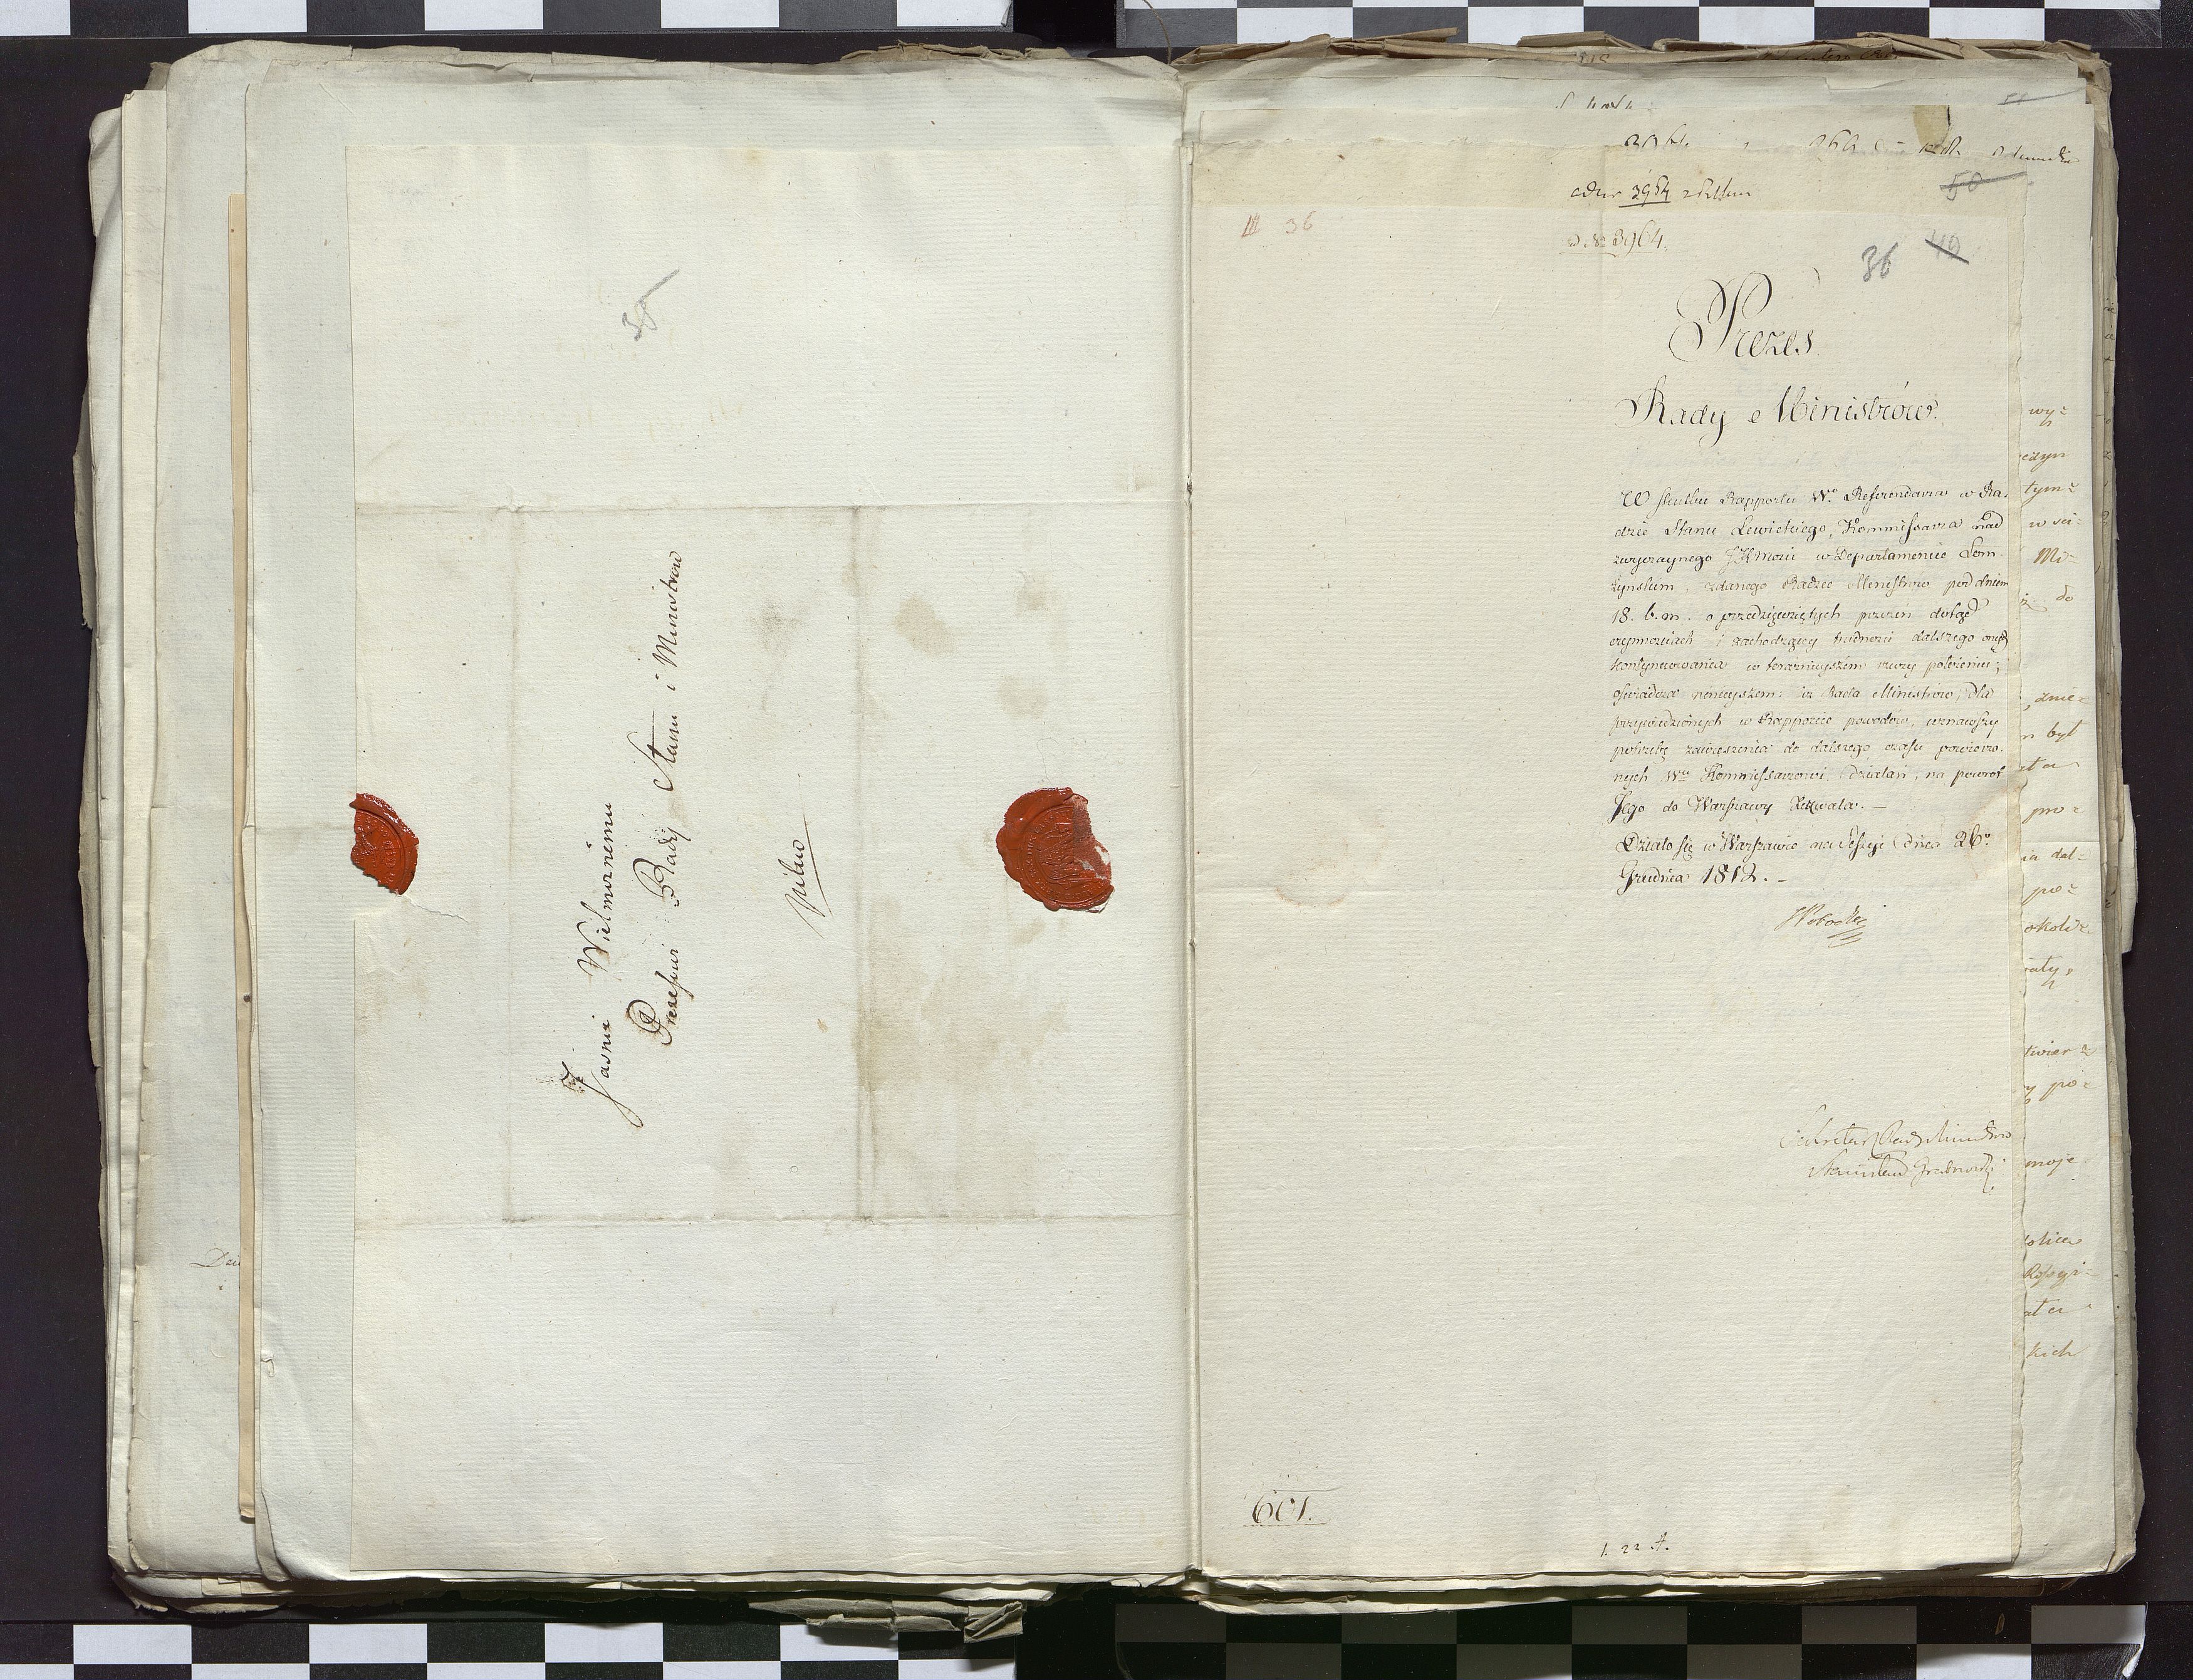 35
Jaśnie Wielmożnemu
Prezesowi Rady Stanu i Ministrow
pilno
50
III 36
ad Nr 3964.
36 49
Prezes
Rady Ministrów.
W skutku Rapportu Wo Referendarza w Ra-
dzie Stanu Lewickiego, Kommissarza nad
zwyczaynego JKMości w Departamencie Łom-
żyńskim, zdanego Radzie Ministrow pod dniem
18. b. m. o przedsięwziętych przezeń dotąd
czynnościach i zachodzącey trudności dalszego onych
kontynuowania w teraznieyszém rzeczy położeniu;
oświadcza ninieyszem: iż Rada Ministrów, dla
przywiedzionych w Rapporcie powodow, uznawszy
potrzebę zawieszenia do dalszego czasu powierzo-
nych Wu Kommissarzowi działań, na powrot
Jego do Warszawy zezwala. —
Działo się w Warszawie na Sessyi dnia 26o
Grudnia 1812. —
Sekretarz Rady Ministrow
Stanisław Grabowski
601.
1. 22 A.
wy-
tym-
Mo-
do
dnie-
był
pro-
dal-
po-
po-
moje
kich